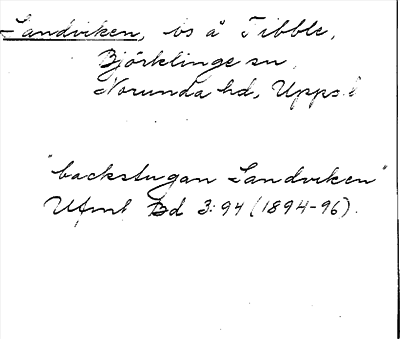 Sandviken, bs å Tibble,
Björklinge sn,
Norunda hd, Upps.l
"backstugan Sandviken"
Ufmt Bd 3:94 (1894-96).